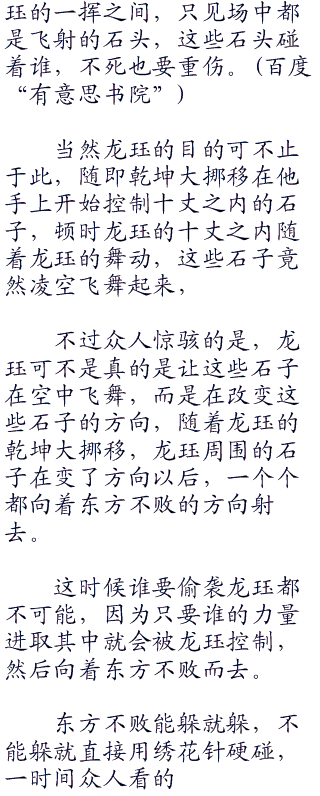 珏的一挥之间，只见场中都
是飞射的石头，这些石头碰
着谁，不死也要重伤。(百度
“有意思书院”)
当然龙珏的目的可不止
于此，随即乾坤大挪移在他
手上开始控制十丈之内的石
子，顿时龙珏的十丈之内随
着龙珏的舞动，这些石子竟
然凌空飞舞起来，
不过众人惊骇的是，龙
珏可不是真的是让这些石子
在空中飞舞，而是在改变这
些石子的方向，随着龙珏的
乾坤大挪移，龙珏周围的石
子在变了方向以后，一个个
都向着东方不败的方向射
去。
这时候谁要偷袭龙珏都
不可能，因为只要谁的力量
进取其中就会被龙珏控制，
然后向着东方不败而去。
东方不败能躲就躲，不
能躲就直接用绣花针硬碰，
一时间众人看的